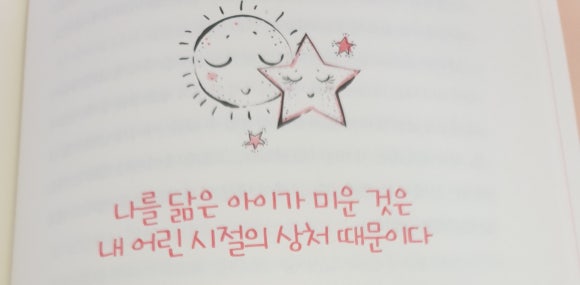 나를 닮은 아이가 미운 것은
내 어린 시절의 상처 때문이다